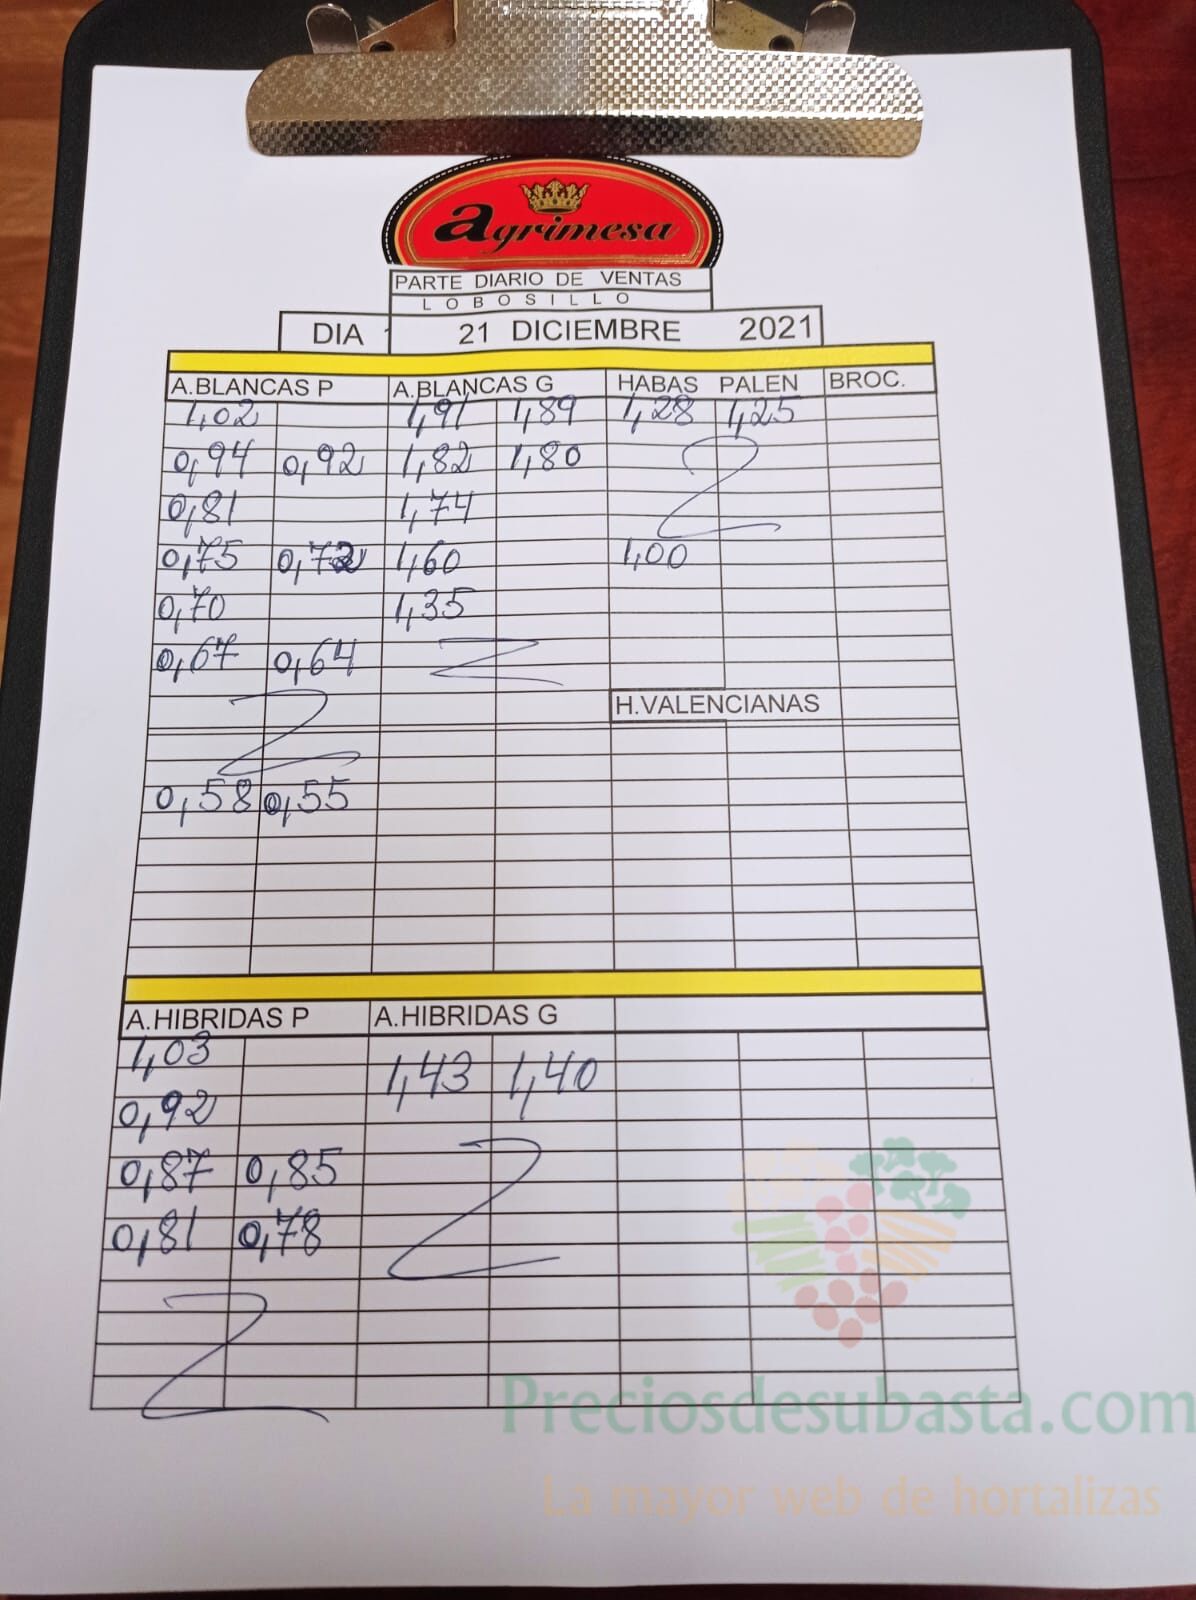 Agrimesa
PARTE DIARIO DE VENTAS
LOBOSILLO
DIA 21 DICIEMBRE 2021
A.BLANCAS P A.BLANCAS G HABAS PALEN BROC.
1,02 1,91 1,89 1,28 1,25
0,94 0,92 1,82 1,80
0,81 1,74
0,75 0,72 1,60 1,00
0,70 1,35
0,67 0,64
H.VALENCIANAS
0,58 0,55
A.HIBRIDAS P A.HIBRIDAS G
1,03 1,43 1,40
0,92
0,87 0,85
0,81 0,78
Preciosdesubasta.com
La mayor web de hortalizas